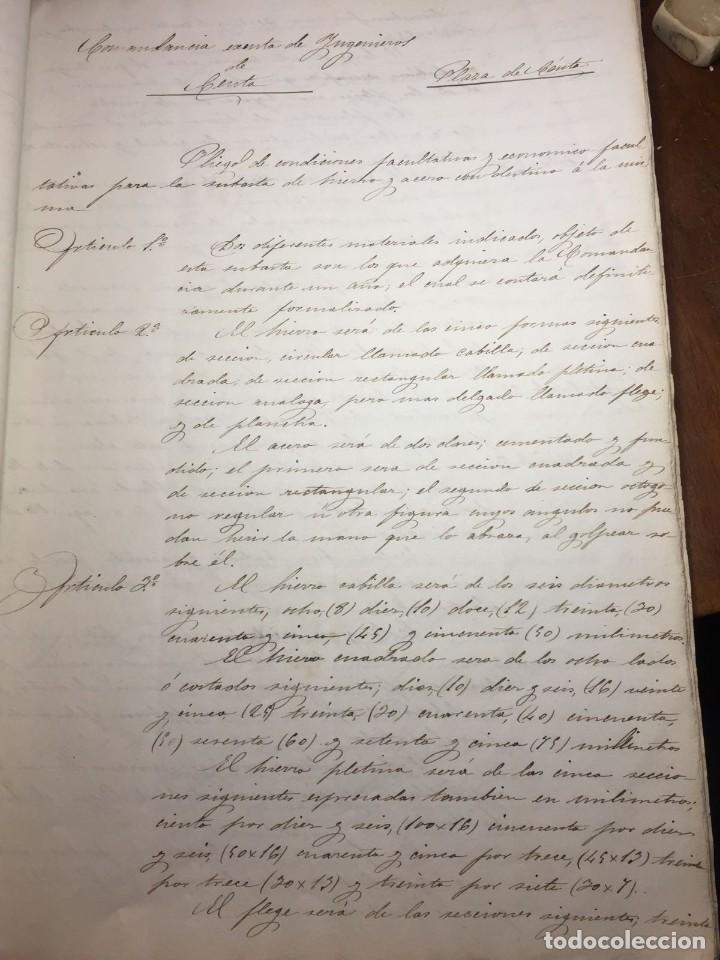 Comandancia exenta de Ingenieros
de
Ceuta
Plaza de Ceuta
Pliego de condiciones facultativas y economico facul
tativas para la subasta de hierro y acero con destino á la mis
ma
Articulo 1º Los diferentes materiales indicados, objeto de
esta subasta son los que adquiera la Comandan
cia durante un año; el cual se contará definiti
vamente formalizado.
Articulo 2º El hierro será de las cinco formas siguientes
de seccion, circular llamado cabilla; de seccion cua
drada; de seccion rectangular llamado pletina; de
seccion analoga, pero mas delgado llamado flege;
y de plancha.
El acero será de dos clases; cementado y fun
dido; el primero sera de seccion cuadrada y
de seccion rectangular; el segundo de seccion octogo
no regular ú otra figura cuyos angulos no pue
dan herir la mano que lo abraza, al golpear so
bre él.
Articulo 3º El hierro cabilla será de los seis diametros
siguientes, ocho, (8) diez, (10) doce, (12) treinta, (30)
cuarenta y cinco, (45) y cincuenta (50) milimetros.
El hierro cuadrado sera de los ocho lados
ó costados siguientes; diez, (10) diez y seis, (16) veinte
y cinco (25) treinta, (30) cuarenta, (40) cincuenta,
(50) sesenta (60) y setenta y cinca (75) millimetros
El hierro pletina será de las cinca seccio-
nes siguientes espresadas tambien en milimetros;
ciento por diez y seis, (100x16) cincuenta por diez
y seis, (50x16) cuarenta y cinca por trece, (45x13) treinta
por trece (30x13) y treinta por siete (30x7).
El flege será de las secciones siguientes; treinta
todocoleccion.net